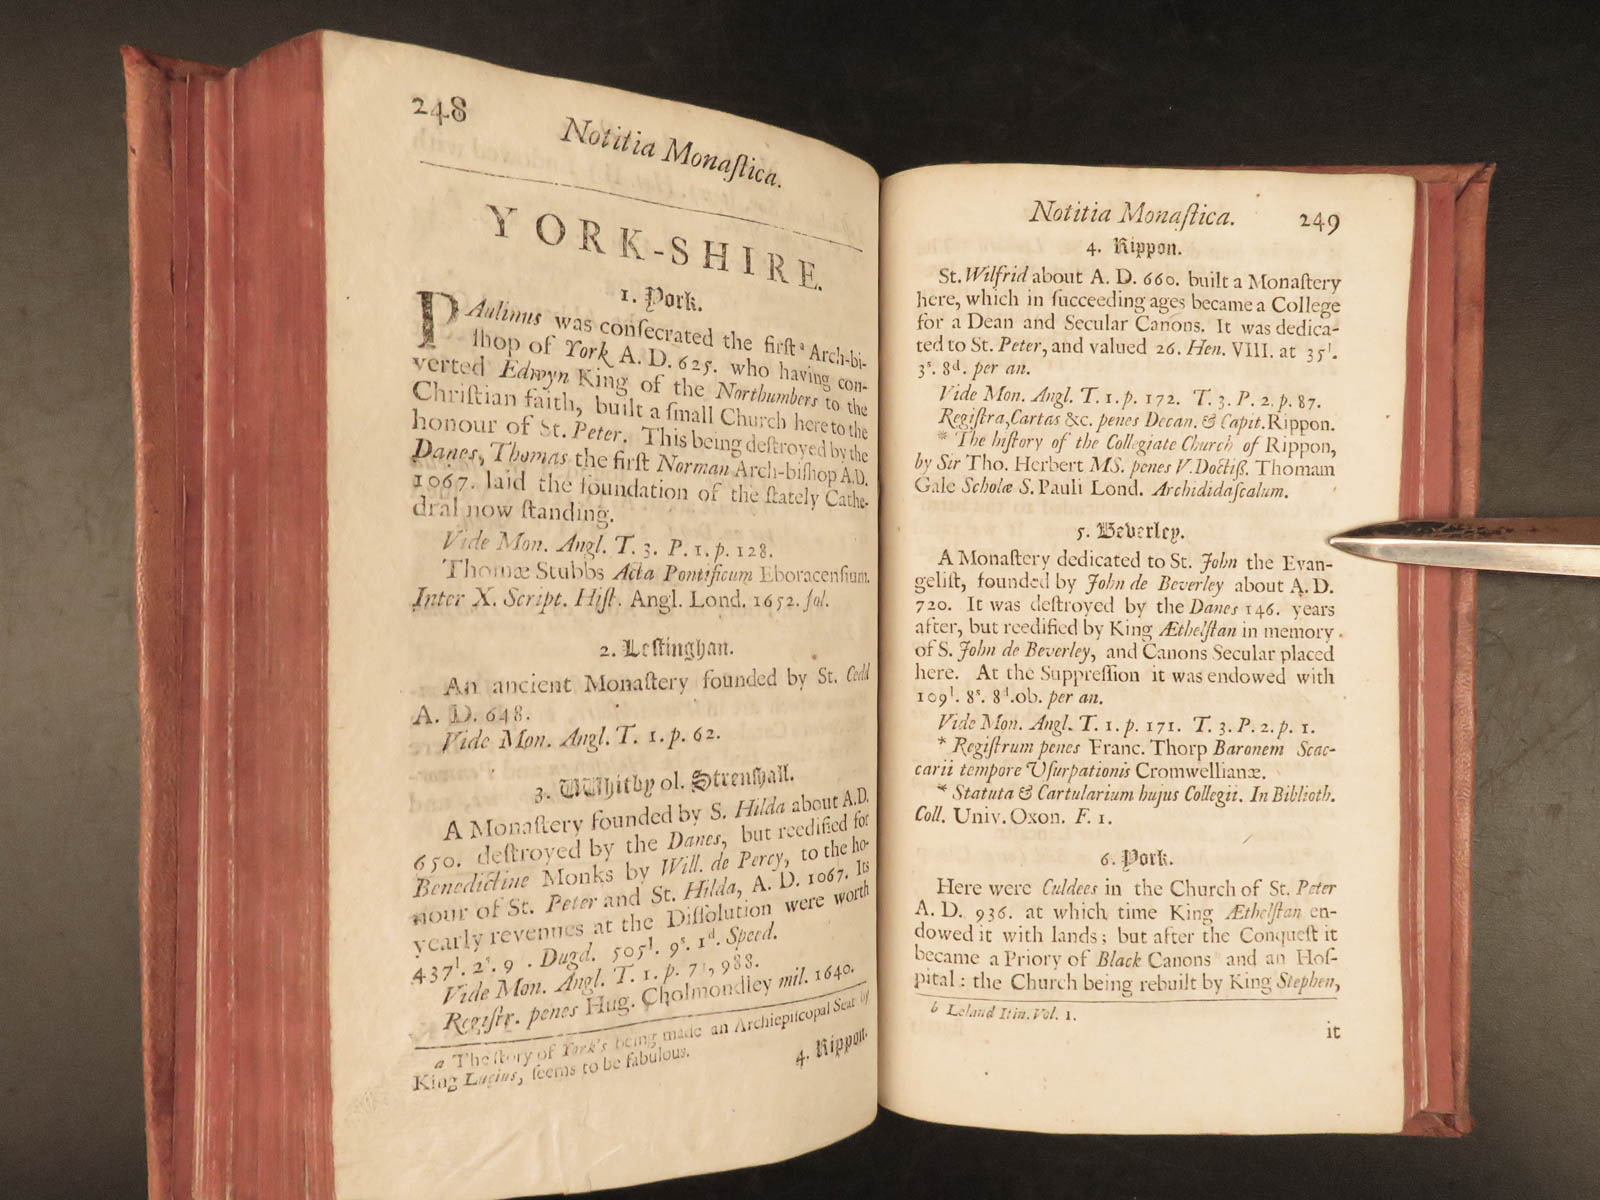 248
Notitia Monaſtica.
YORK-SHIRE.
1. York.
PAulinus was conſecrated the firſt a Arch-bi-
ſhop of York A. D. 625. who having con-
verted Edwyn King of the Northumbers to the
Chriſtian faith, built a ſmall Church here to the
honour of St. Peter. This being deſtroyed by the
Danes, Thomas the firſt Norman Arch-biſhop A.D.
1067. laid the foundation of the ſtately Cathe-
dral now ſtanding.
Vide Mon. Angl. T. 3. P. 1. p. 128.
Thomæ Stubbs Acta Pontificum Eboracenſium.
Inter X. Script. Hiſt. Angl. Lond. 1652. fol.
2. Leſtinghan.
An ancient Monaſtery founded by St. Cedd
A. D. 648.
Vide Mon. Angl. T. 1. p. 62.
3. Whitby ol. Strenſhall.
A Monaſtery founded by S. Hilda about A.D.
650. deſtroyed by the Danes, but reedified for
Benedictine Monks by Will. de Percy, to the ho-
nour of St. Peter and St. Hilda, A. D. 1067. Its
yearly revenues at the Diſſolution were worth
437l. 2s. 9 . Dugd. 505l. 9s. 1d. Speed.
Vide Mon. Angl. T. 1. p. 71, 988.
Regiſtr. penes Hug. Cholmondley mil. 1640.
a The ſtory of York's being made an Archiepiſcopal Seat by
King Lucius, ſeems to be fabulous.
4. Rippon.
Notitia Monaſtica. 249
4. Rippon.
St. Wilfrid about A. D. 660. built a Monaſtery
here, which in ſucceeding ages became a College
for a Dean and Secular Canons. It was dedica-
ted to St. Peter, and valued 26. Hen. VIII. at 35l.
3s. 8d. per an.
Vide Mon. Angl. T. 1. p. 172. T. 3. P. 2. p. 87.
Regiſtra, Cartas &c. penes Decan. & Capit. Rippon.
* The hiſtory of the Collegiate Church of Rippon,
by Sir Tho. Herbert MS. penes V. Doctiß. Thomam
Gale Scholæ S. Pauli Lond. Archididaſcalum.
5. Beverley.
A Monaſtery dedicated to St. John the Evan-
geliſt, founded by John de Beverley about A. D.
720. It was deſtroyed by the Danes 146. years
after, but reedified by King Æthelſtan in memory
of S. John de Beverley, and Canons Secular placed
here. At the Suppreſſion it was endowed with
109l. 8s. 8d. ob. per an.
Vide Mon. Angl. T. 1. p. 171. T. 3. P. 2. p. 1.
* Regiſtrum penes Franc. Thorp Baronem Scac-
carii tempore Uſurpationis Cromwellianæ.
* Statuta & Cartularium hujus Collegii. In Biblioth.
Coll. Univ. Oxon. F. 1.
6. York.
Here were Culdees in the Church of St. Peter
A. D. 936. at which time King Æthelſtan en-
dowed it with lands; but after the Conqueſt it
became a Priory of Black Canons and an Hoſ-
pital: the Church being rebuilt by King Stephen,
b Leland Itin. Vol. 1.
it